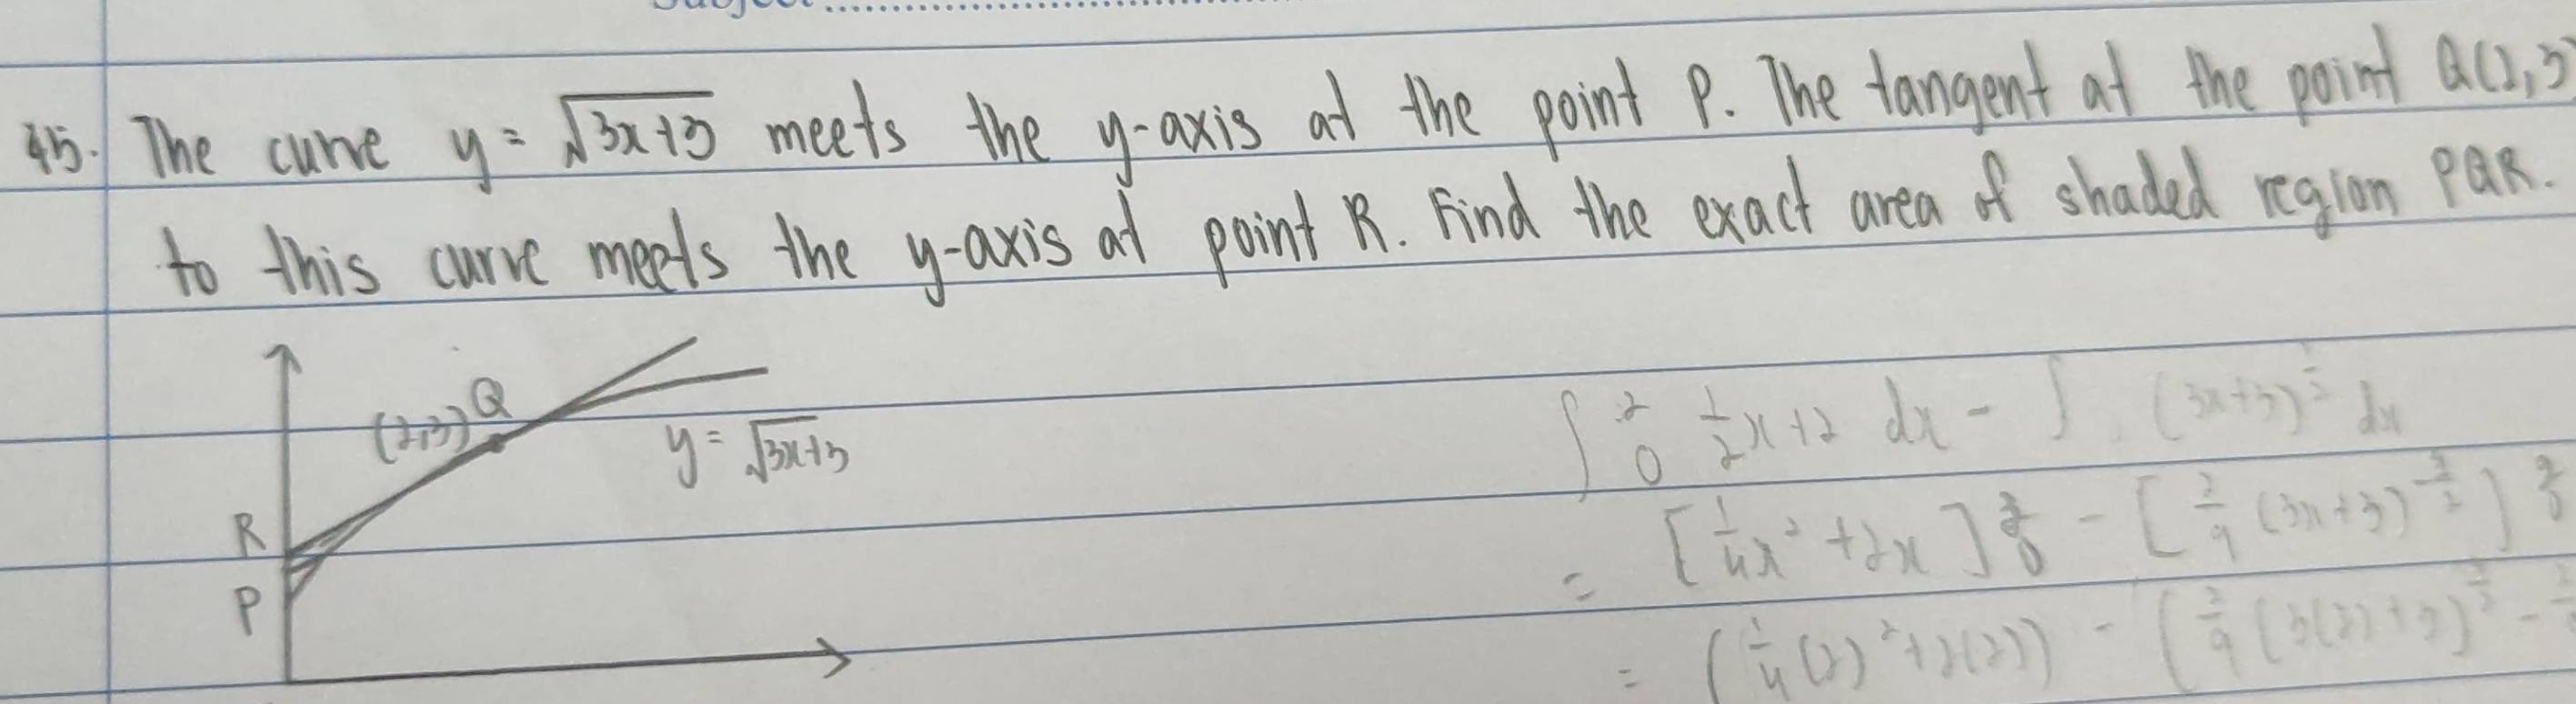 Subject
45. The curve y = √3x+3 meets the y-axis at the point P. The tangent at the point Q(2,3)
to this curve meets the y-axis at point R. Find the exact area of shaded region PQR.
(2,3) Q
y = √3x+3
R
P
∫ 2 0 1/2 x+2 dx - ∫ (3x+3)^1/2 dx
= [1/4 x² + 2x] 2 0 - [2/9 (3x+3)^3/2] 2 0
= (1/4 (2)² + 2(2)) - (2/9 (3(2)+3)^3/2 -